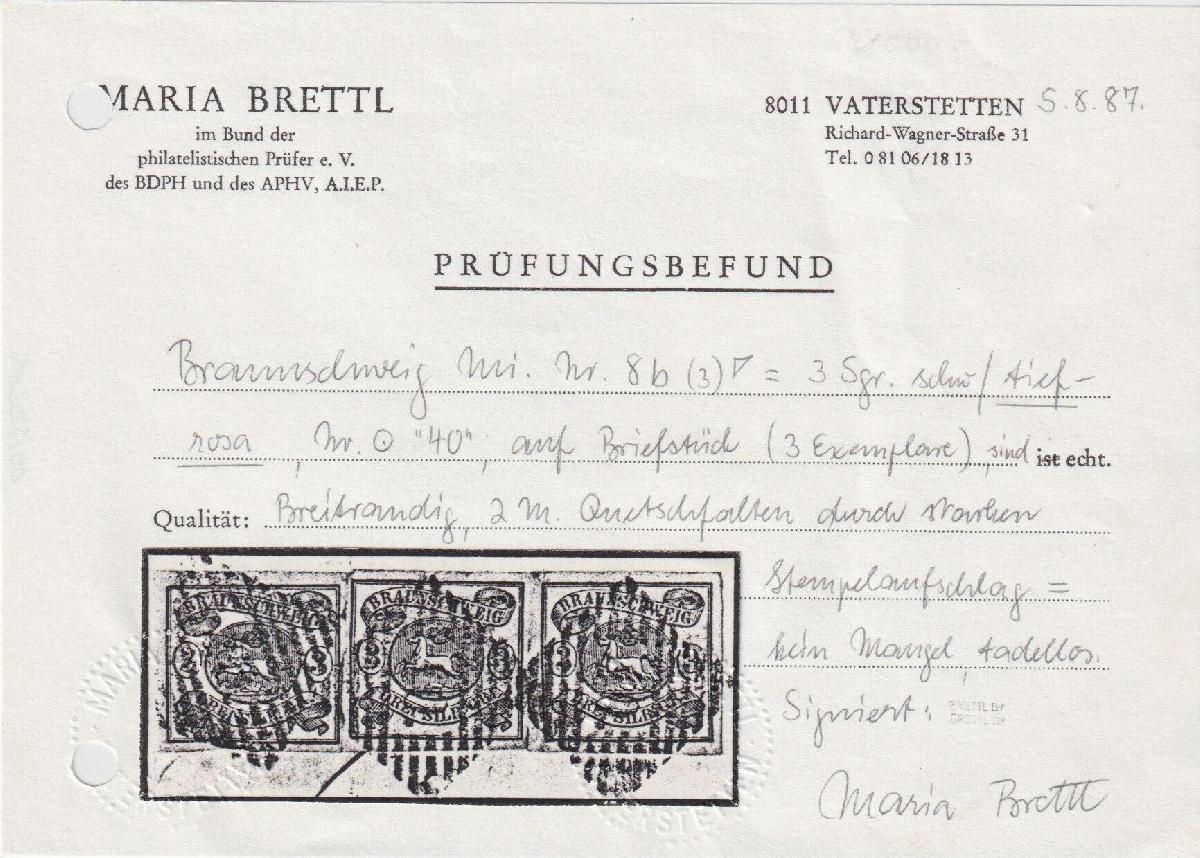 MARIA BRETTL
im Bund der
philatelistischen Prüfer e. V.
des BDPH und des APHV, A.I.E.P.
8011 VATERSTETTEN 5.8.87.
Richard-Wagner-Straße 31
Tel. 0 81 06/18 13
PRÜFUNGSBEFUND
Braunschweig Mi. Nr. 8b (3) = 3 Sgr. schw/tief-
rosa, Nr. ⊙ "40", auf Briefstück (3 Exemplare), sind ist echt.
Qualität: Breitrandig, 2 M. Quetschfalten durch starken
Stempelaufschlag =
kein Mangel, tadellos.
Signiert: BRETTL BP
BRETTL BP
Maria Brettl
BRAUNSCHWEIG
3 3
DREI SILB
BRAUNSCHWEIG
3 3
DREI SILB
BRAUNSCHWEIG
3
DREI SILB